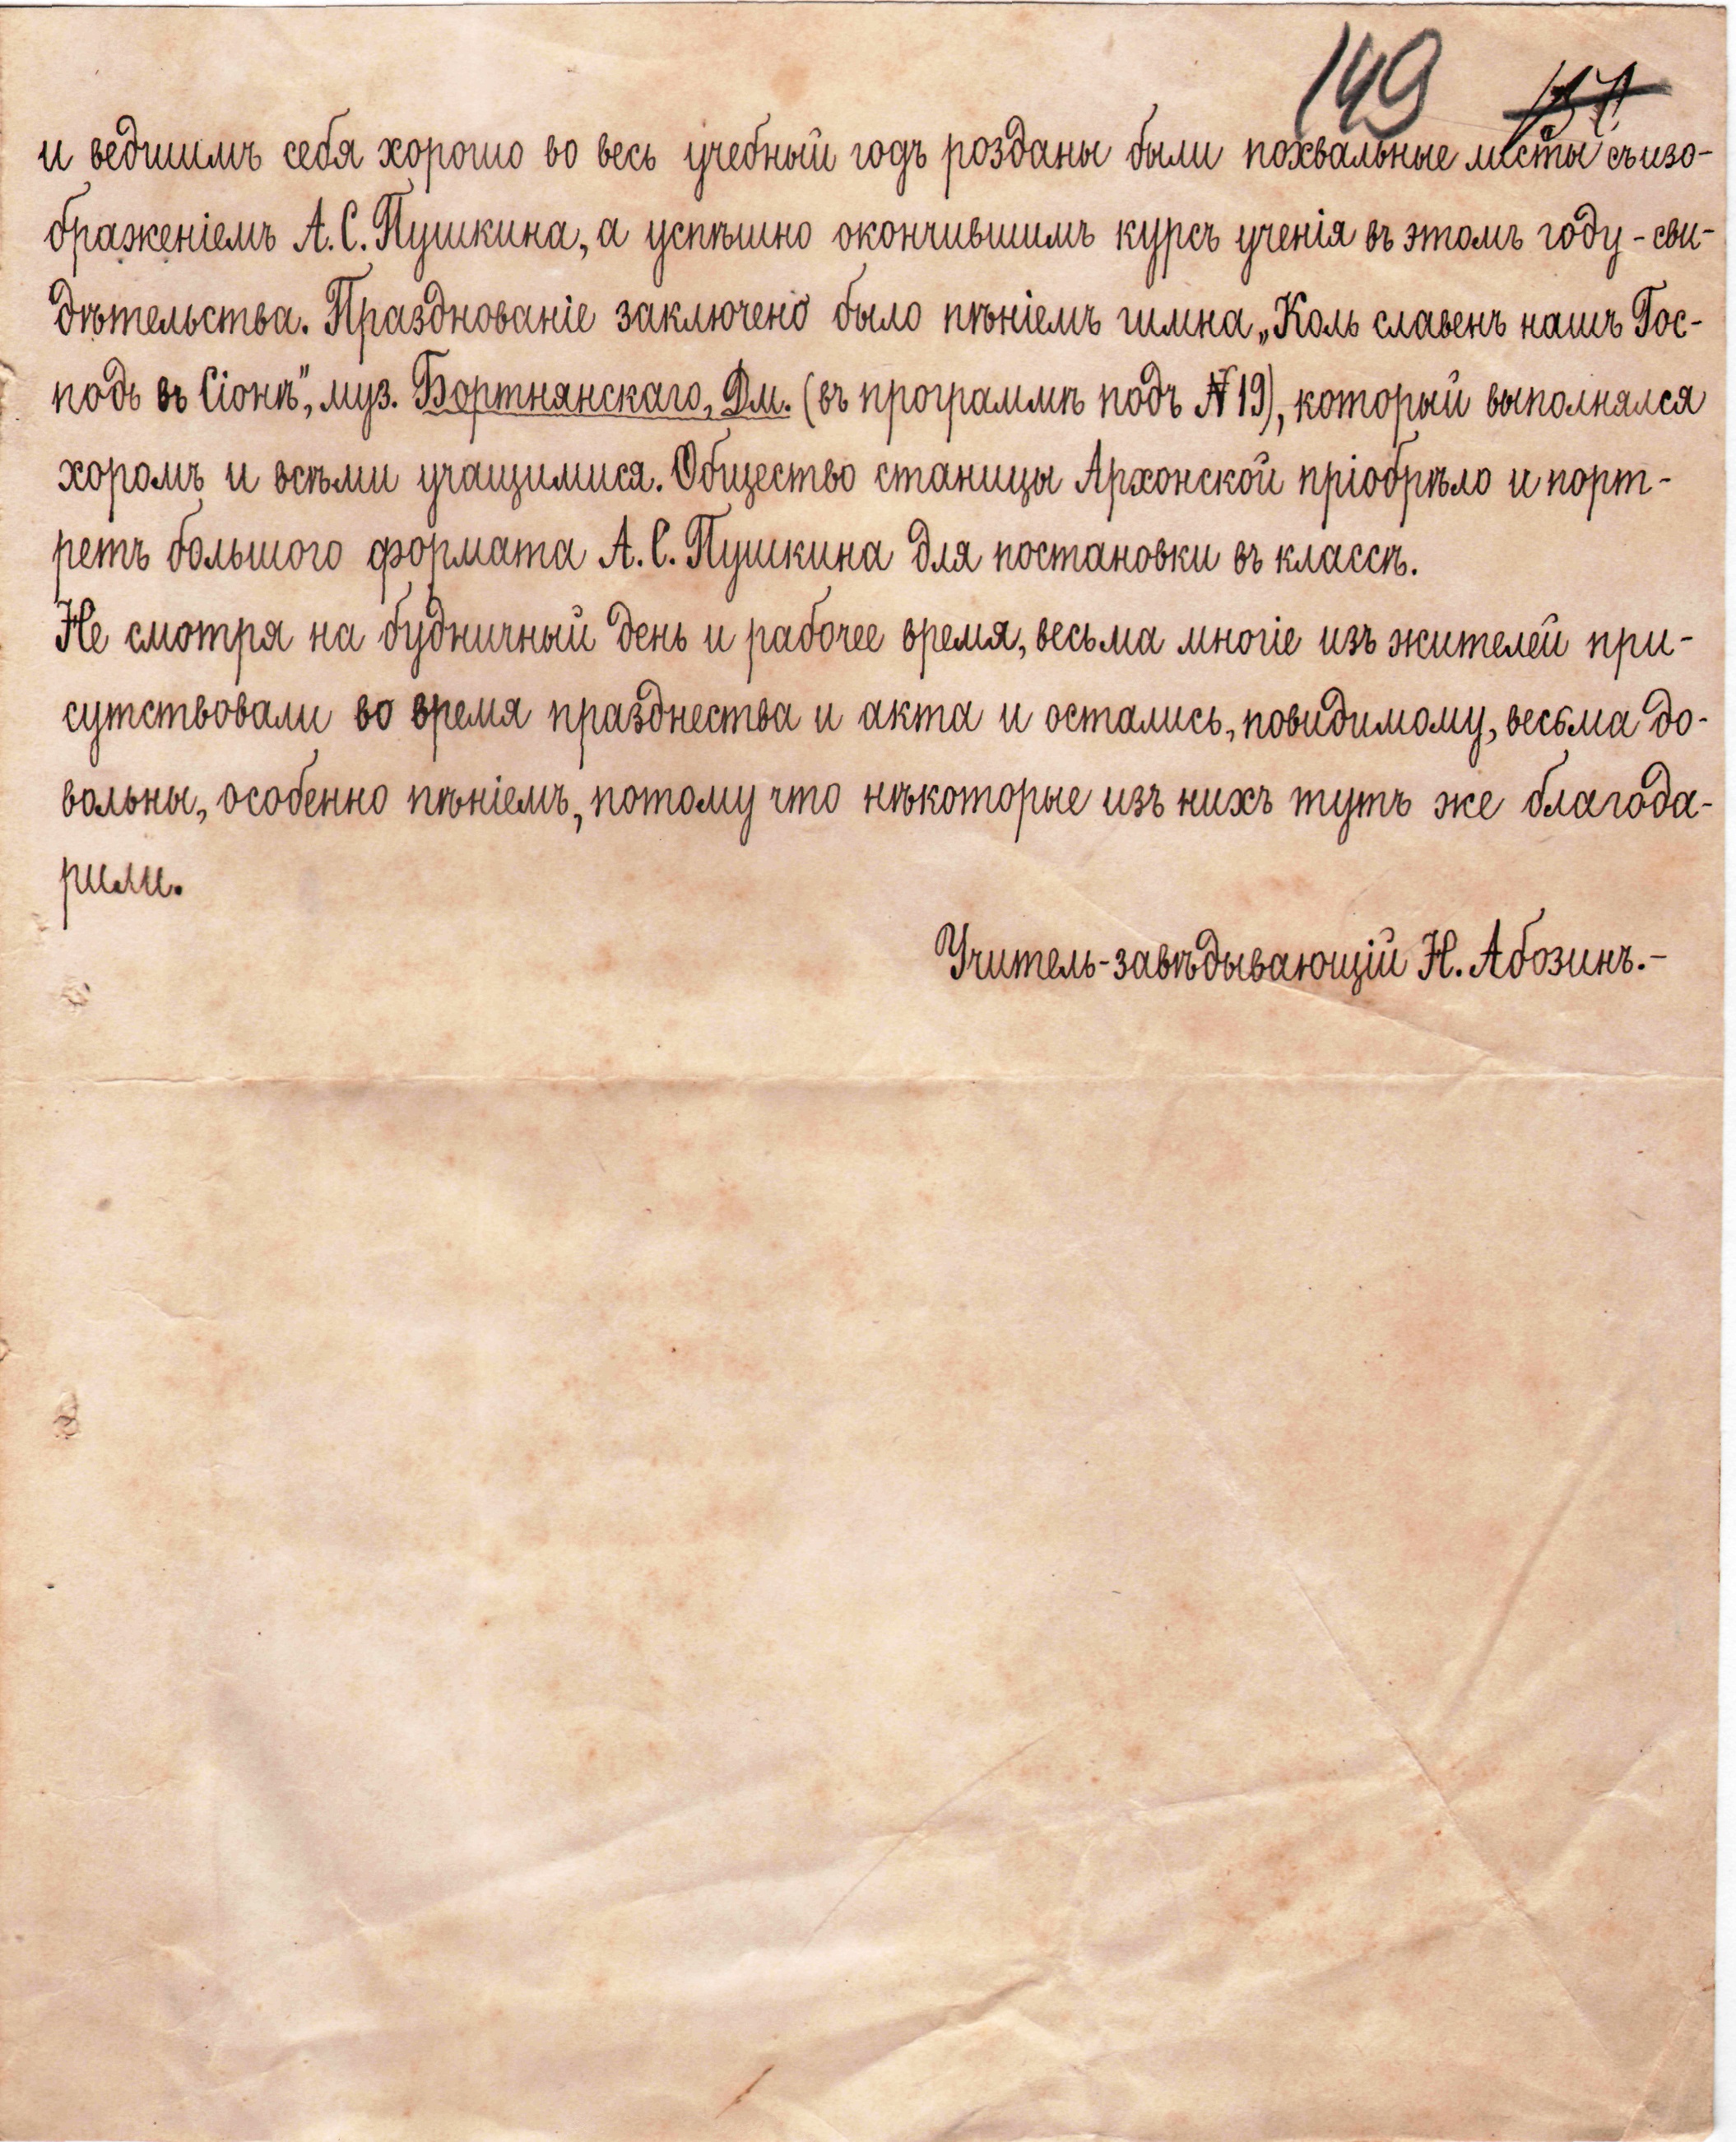 149
и ведшимъ себя хорошо во весь учебный годъ розданы были похвальные листы съ изо-
браженіемъ А. С. Пушкина, а успѣшно окончившимъ курсъ ученія въ этомъ году - сви-
дѣтельства. Празднованіе заключено было пѣніемъ гимна „Коль славенъ нашъ Гос-
подь въ Сіонѣ", муз. Бортнянскаго, Дм. (въ программѣ подъ № 19), который выполнялся
хоромъ и всѣми учащимися. Общество станицы Архонской пріобрѣло и порт-
ретъ большого формата А. С. Пушкина для постановки въ классѣ.
Не смотря на будничный день и рабочее время, весьма многіе изъ жителей при-
сутствовали во время празднества и акта и остались, повидимому, весьма до-
вольны, особенно пѣніемъ, потому что нѣкоторые изъ нихъ тутъ же благода-
рили.
Учитель-завѣдывающій Н. Абозинъ.-